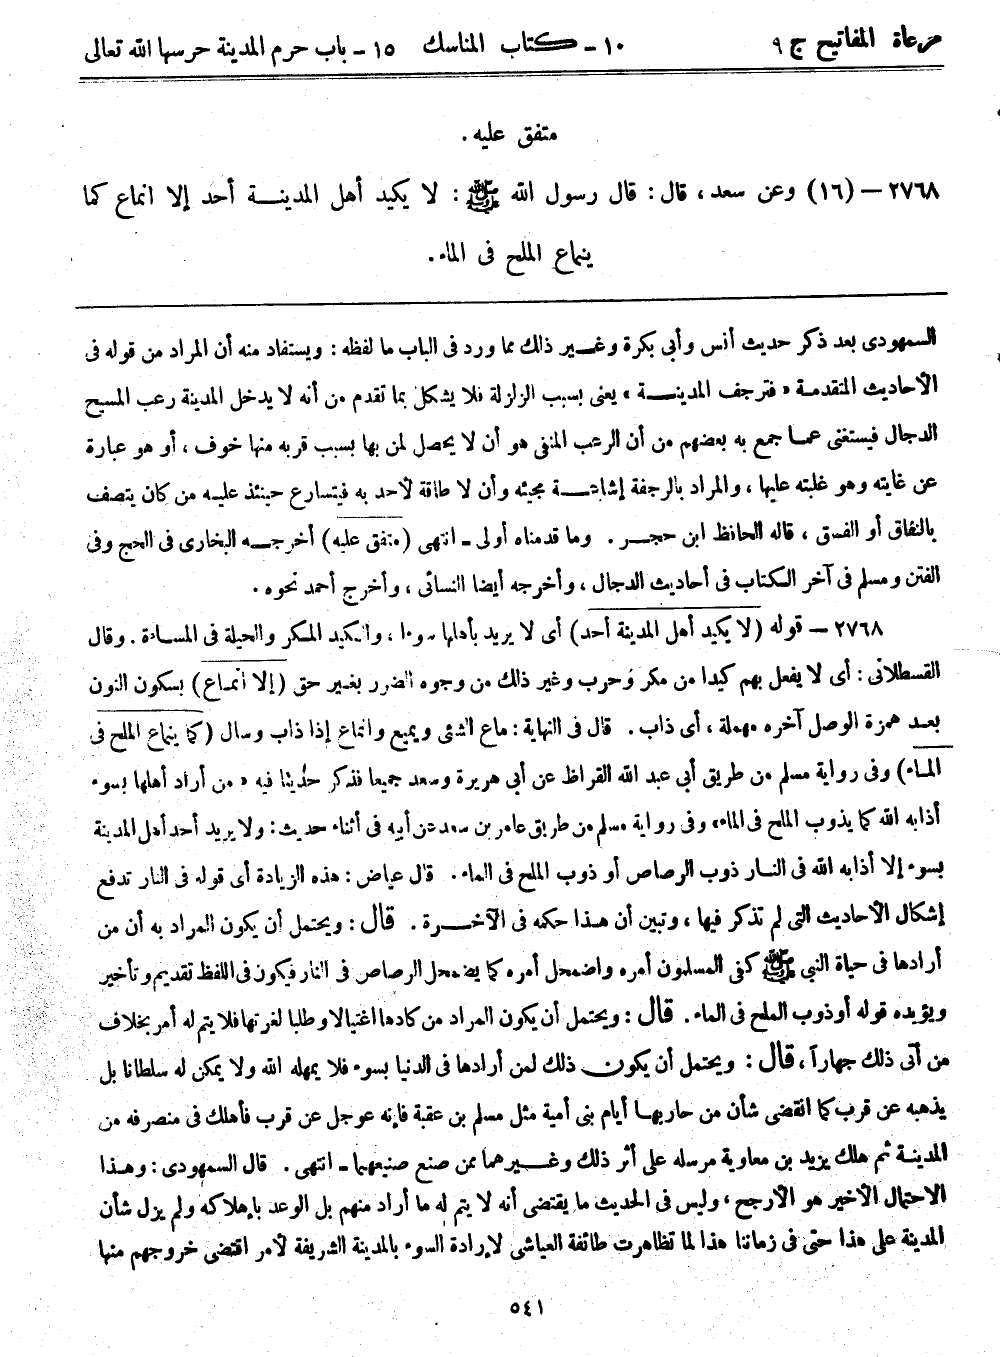 مرعاة المفاتيح ج ٩ ١٠ - كتاب المناسك ١٥ - باب حرم المدينة حرسها الله تعالى
متفق عليه .
٢٧٦٨ – (١٦) وعن سعد ، قال : قال رسول الله ﷺ : لا يكيد أهل المدينة أحد إلا انماع كما
ينماع الملح فى الماء .
السمهودى بعد ذكر حديث أنس وأبى بكرة وغير ذلك مما ورد فى الباب ما لفظه : ويستفاد منه أن المراد من قوله فى
الأحاديث المتقدمة « فترجف المدينة » يعنى بسبب الزلزلة فلا يشكل بما تقدم من أنه لا يدخل المدينة رعب المسيح
الدجال فيستغنى عما جمع به بعضهم من أن الرعب المنفى هو أن لا يحصل لمن بها بسبب قربه منها خوف ، أو هو عبارة
عن غايته وهو غلبته عليها ، والمراد بالرجفة إشاعة مجيئه وأن لا طاقة لأحد به فيتسارع حينئذ عليه من كان يتصف
بالنفاق أو الفسق ، قاله الحافظ ابن حجر . وما قدمناه أولى - انتهى (متفق عليه) أخرجه البخارى فى الحج وفى
الفتن ومسلم فى آخر الكتاب فى أحاديث الدجال ، وأخرجه أيضا النسائى ، وأخرج أحمد نحوه .
٢٧٦٨ – قوله (لا يكيد أهل المدينة أحد) أى لا يريد بأهلها سوءا ، والكيد المكر والحيلة فى المساءة . وقال
القسطلانى : أى لا يفعل بهم كيدا من مكر وحرب وغير ذلك من وجوه الضرر بغير حق (إلا انماع) بسكون النون
بعد همزة الوصل آخره مهملة ، أى ذاب . قال فى النهاية : ماع الشئى ويميع وانماع إذا ذاب وسال (كما ينماع الملح فى
الماء) وفى رواية مسلم من طريق أبى عبد الله القراظ عن أبى هريرة وسعد جميعا فذكر حديثا فيه « من أراد أهلها بسوء
أذابه الله كما يذوب الملح فى الماء» وفى رواية مسلم من طريق عامر بن سعد عن أبيه فى أثناء حديث : ولا يريد أحد أهل المدينة
بسوء إلا أذابه الله فى النار ذوب الرصاص أو ذوب الملح فى الماء . قال عياض : هذه الزيادة أى قوله فى النار تدفع
إشكال الأحاديث التى لم تذكر فيها ، وتبين أن هذا حكمه فى الآخرة . قال : ويحتمل أن يكون المراد به أن من
أرادها فى حياة النبى ﷺ كفى المسلمون أمره واضمحل أمره كما يضمحل الرصاص فى النار فيكون فى اللفظ تقديم وتأخير
ويؤيده قوله أو ذوب الملح فى الماء . قال : ويحتمل أن يكون المراد من كادها اغتيالا وطلبا لغرتها فلا يتم له أمر بخلاف
من أتى ذلك جهارآ ، قال : ويحتمل أن يكون ذلك لمن أرادها فى الدنيا بسوء فلا يمهله الله ولا يمكن له سلطانا بل
يذهبه عن قرب كما انقضى شأن من حاربها أيام بنى أمية مثل مسلم بن عقبة فإنه عوجل عن قرب فأهلك فى منصرفه من
المدينة ثم هلك يزيد بن معاوية مرسله على أثر ذلك وغيرهما ممن صنع صنيعهما - انتهى . قال السمهودى : وهذا
الاحتمال الأخير هو الأرجح ، وليس فى الحديث ما يقتضى أنه لا يتم له ما أراد منهم بل الوعد بإهلاكه ولم يزل شأن
المدينة على هذا حتى فى زماننا هذا لما تظاهرت طائفة العياشى لإرادة السوء بالمدينة الشريفة لأمر اقتضى خروجهم منها
٥٤١